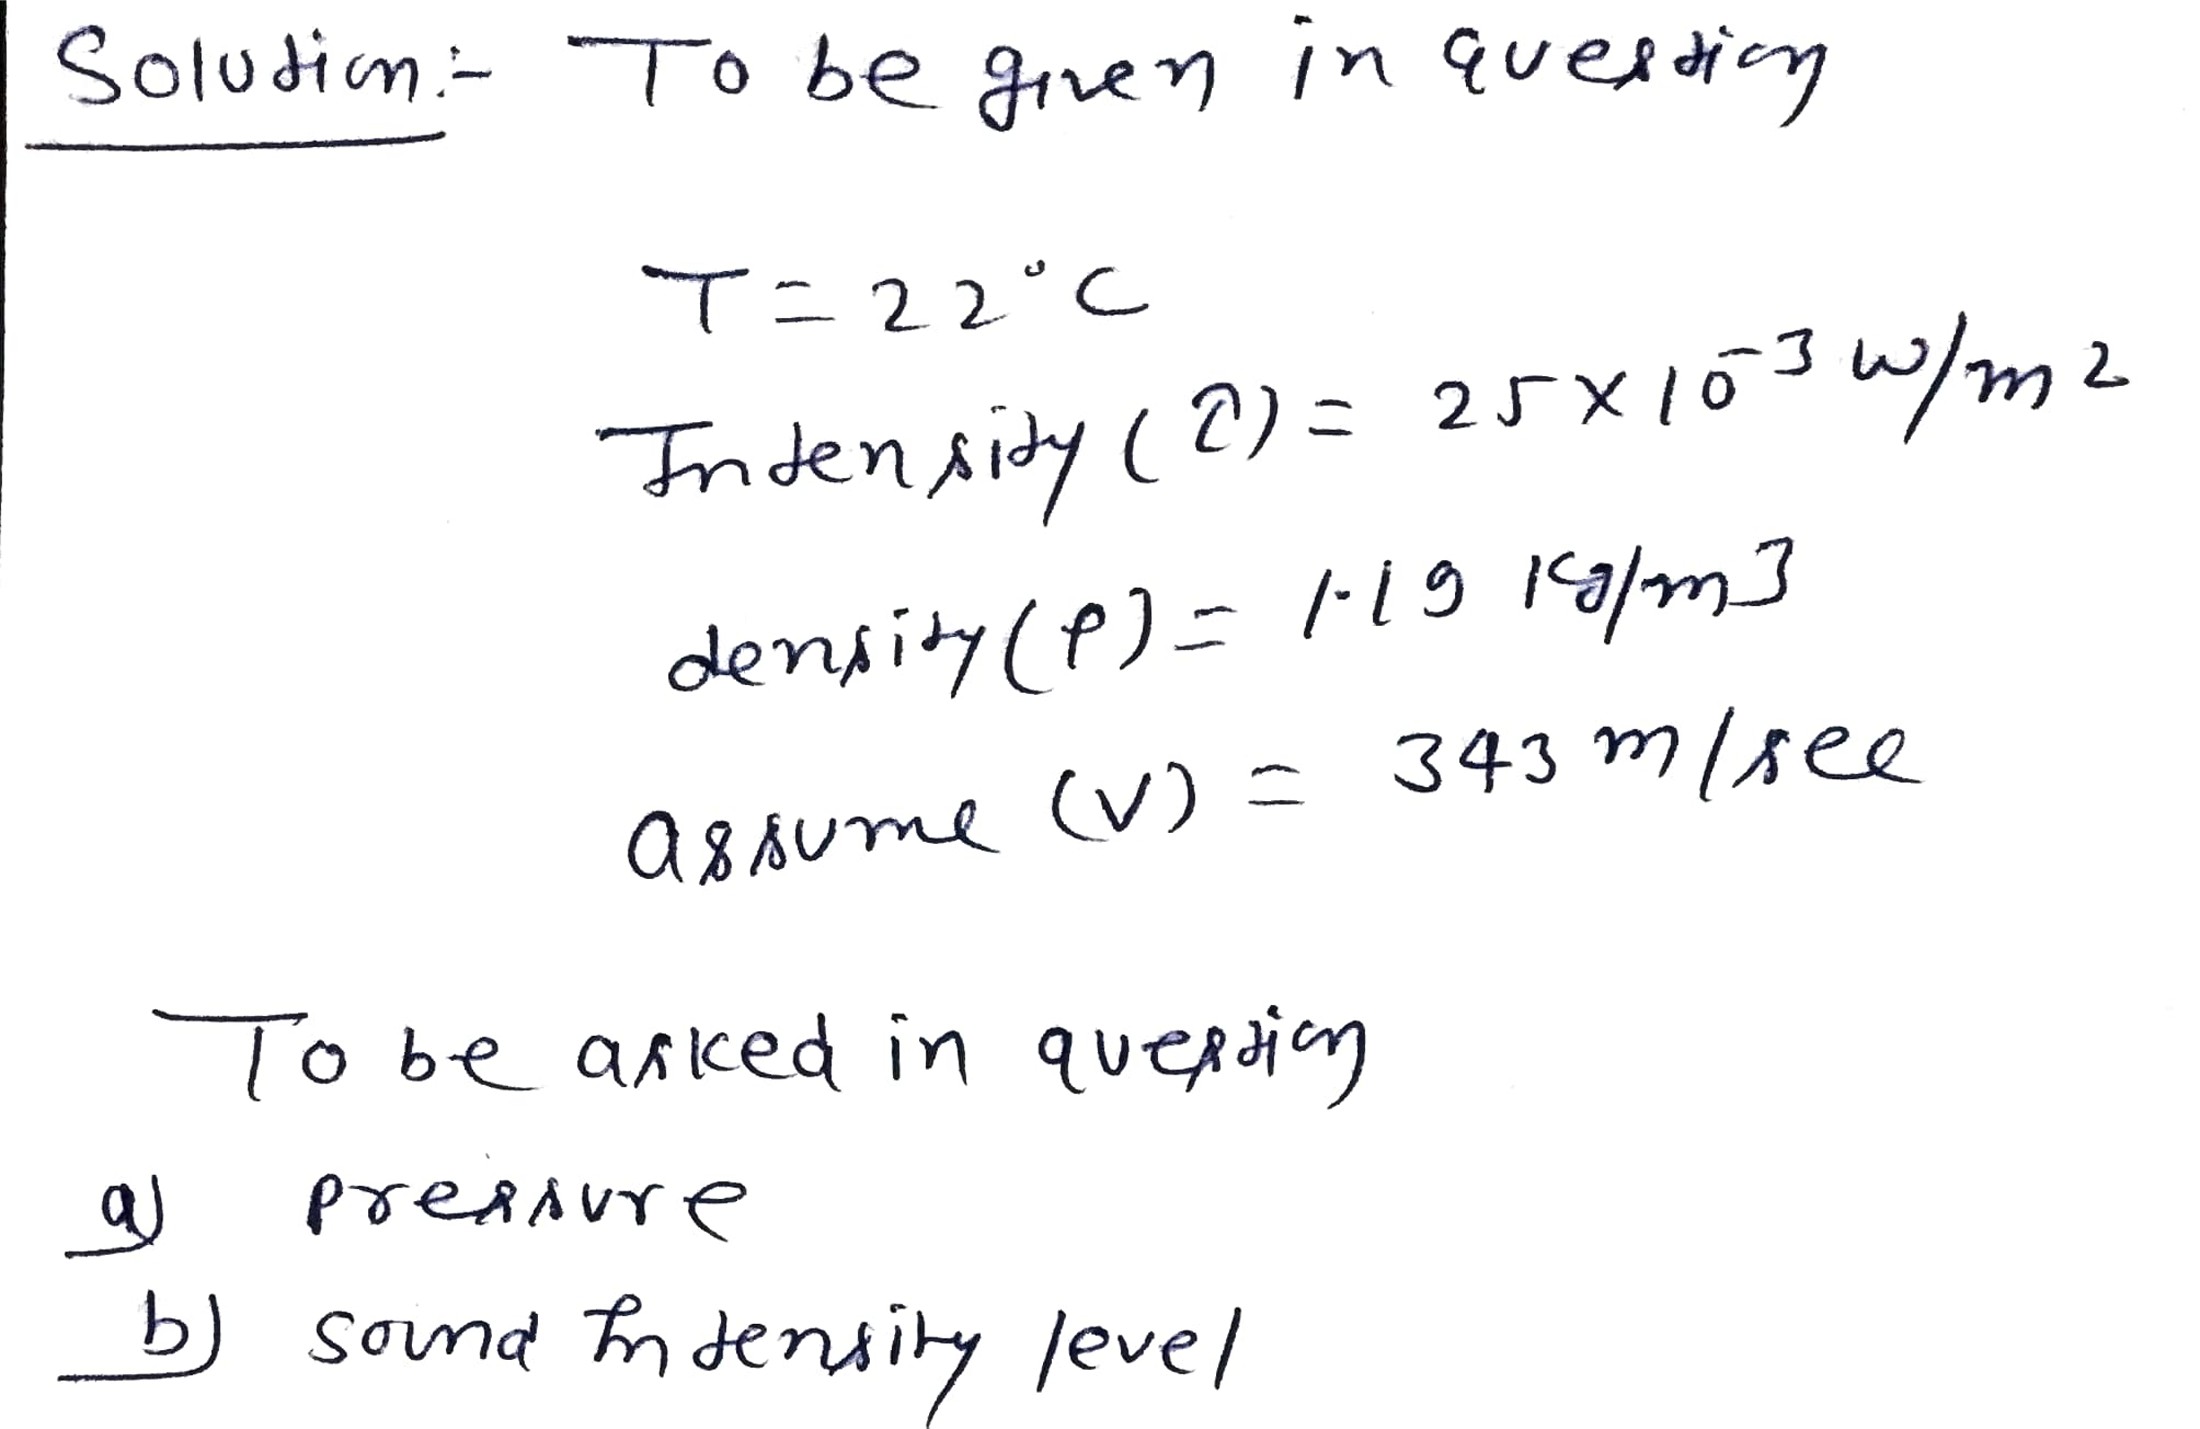 Solution:- To be given in question
T = 22°C
Intensity (I) = 25 × 10⁻³ W/m²
density (ρ) = 1.19 Kg/m³
assume (V) = 343 m/sec
To be asked in question
a) pressure
b) sound Intensity level